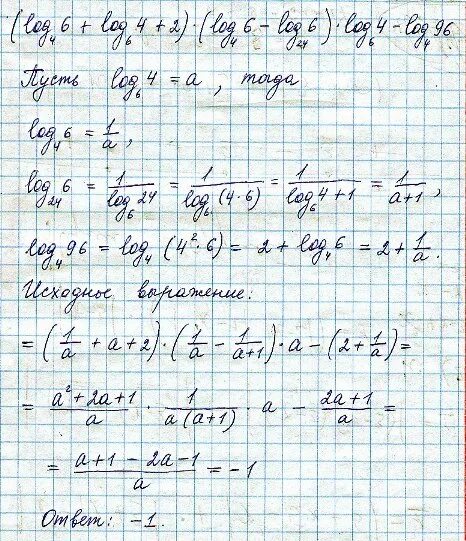 (log₄6 + log₆4 + 2)·(log₄6 − log₂₄6)·log₆4 − log₄96
Пусть log₆4 = a, тогда
log₄6 = 1/a,
log₂₄6 = 1/log₆24 = 1/log₆(4·6) = 1/(log₆4+1) = 1/(a+1),
log₄96 = log₄(4²·6) = 2 + log₄6 = 2 + 1/a.
Исходные выражение:
= (1/a + a + 2)·(1/a − 1/(a+1))·a − (2 + 1/a) =
= (a²+2a+1)/a · 1/(a(a+1)) · a − (2a+1)/a =
= (a+1−2a−1)/a = −1
Ответ: −1.